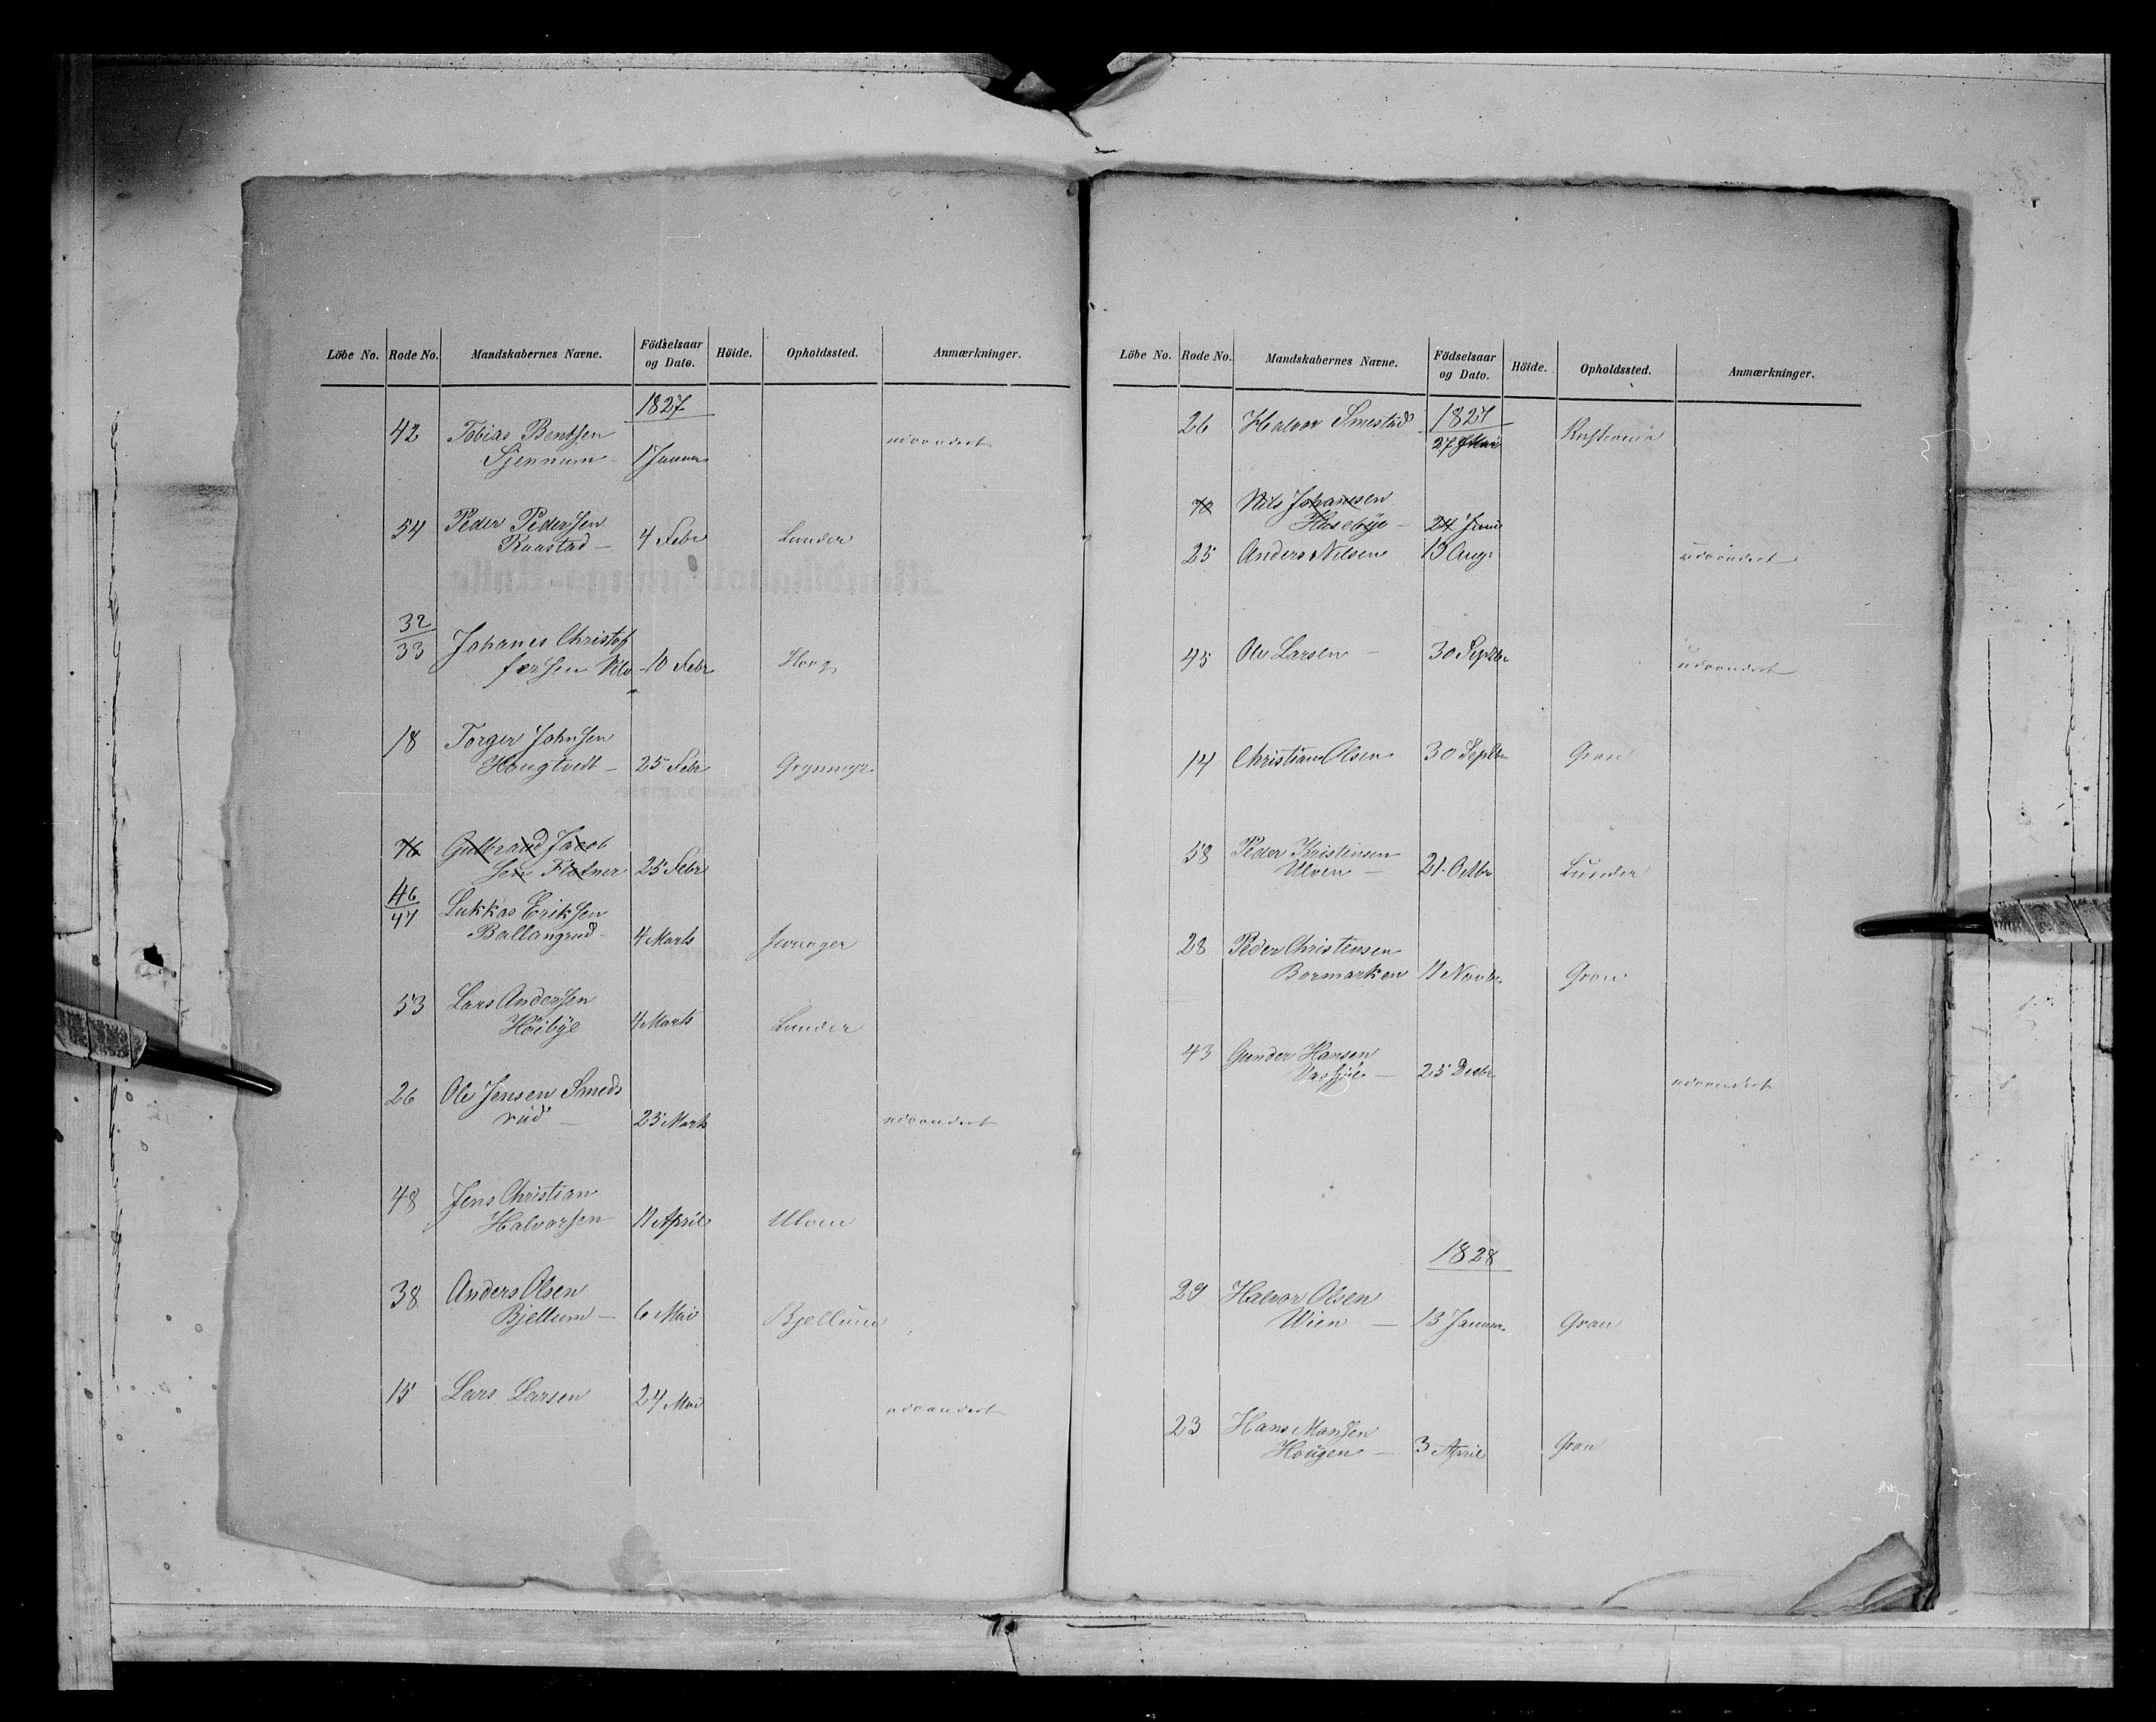 Löbe No. Rode No. Mandskabernes Navne. Födselsaar og Dato. Höide. Opholdssted. Anmærkninger.
1827
42 Tobias Bentsen udvandret
Sjennum - 1 Januar
54 Peder Pedersen
Raastad - 4 Febr Lunder
32/33 Johanes Christof
fersen 10 Febr Houg
18 Torger Johnsen
Hougtvedt - 25 Febr Grynmyr
Gulbrand Jacob
sen Flatner 25 Febr
46/47 Lukkas Eriksen
Ballangrud - 4 Marts Jevnager
53 Lars Andersen
Höibye 4 Marts Lunder
26 Ole Jensen Smeds
rud - 25 Marts udvandret
48 Jens Christian
Halvorsen 11 April Ulven
38 Anders Olsen
Bjellum - 6 Mai Bjellum
15 Lars Larsen 24 Mai udvandret
Löbe No. Rode No. Mandskabernes Navne. Födselsaar og Dato. Höide. Opholdssted. Anmærkninger.
26 Halvor Smestad 1827
27 Mai
70 Nils Johansen
Hasebye - 24 Juni
25 Anders Nilsen 13 Aug: udvandret
45 Ole Larsen - 30 Septbr udvandret
14 Christian Olsen 30 Septbr Gran
58 Peder Kristensen
Ulven - 21 Octbr Lunder
28 Peder Christensen
Bormarken 11 Novbr Gran
43 Gunder Hansen
25 Decbr udvandret
1828
29 Halvor Olsen
Wien - 13 Januar Gran
23 Hans Monsen
Hougen - 3 April Gran